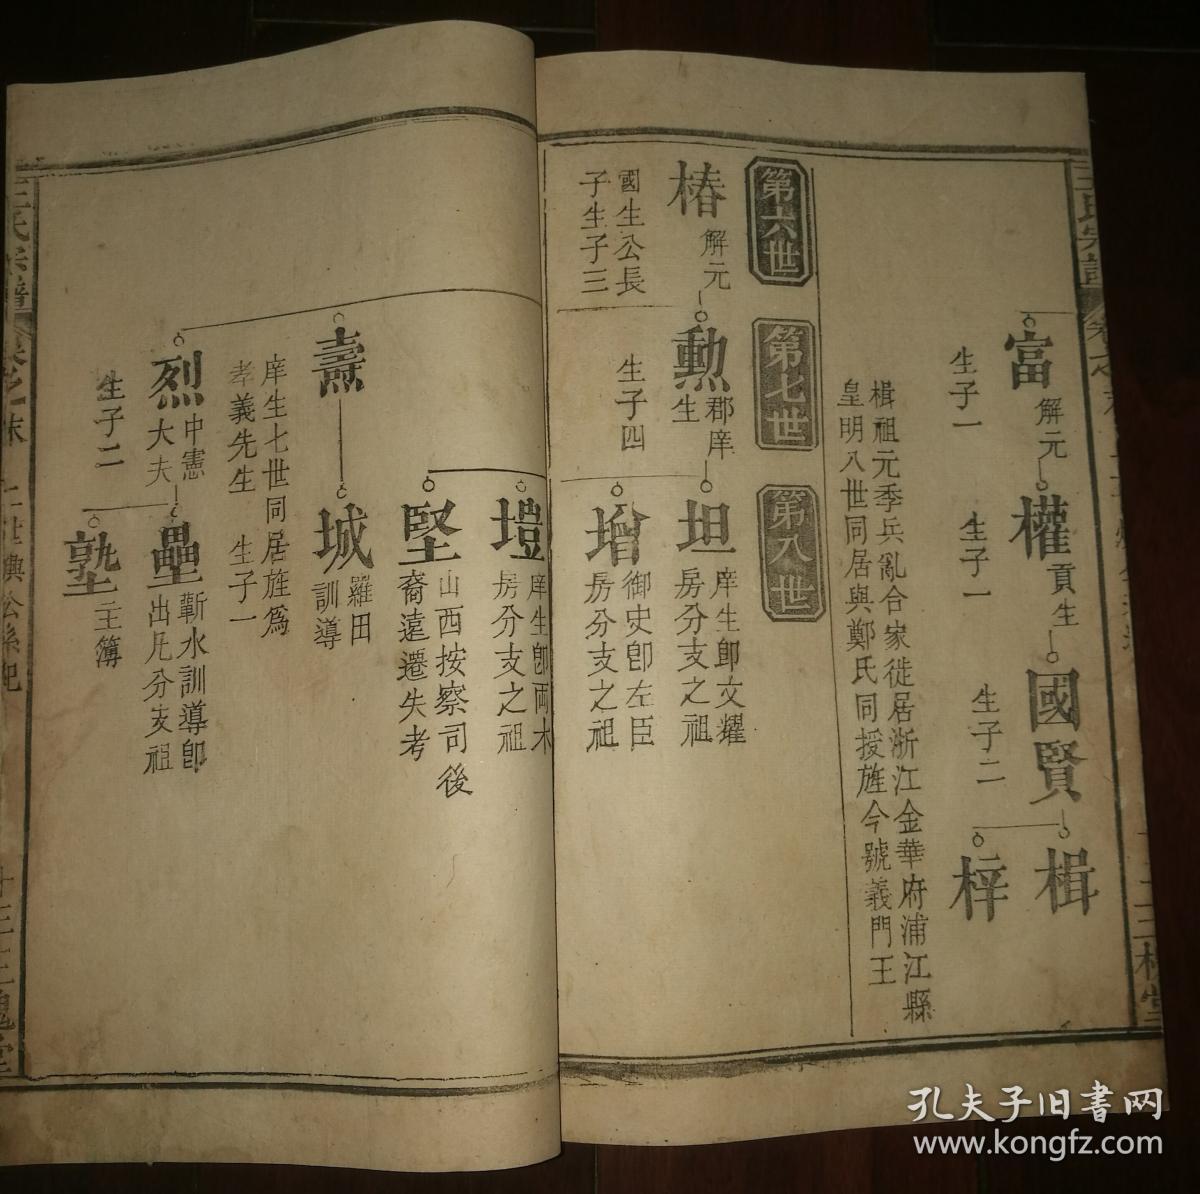 富
解元
生子一
權
貢生
生子一
國賢
生子二
楫
梓
楫祖元季兵亂合家徙居浙江金華府浦江縣
皇明八世同居與鄭氏同援旌今號義門王
第六世
第七世
第八世
椿
解元
國生公長
子生子三
勲
郡庠
生
生子四
坦
庠生卽文耀
房分支之祖
增
御史卽左臣
房分支之祖
塏
庠生卽両木
房分支之祖
堅
山西按察司後
裔遠遷失考
壽
庠生七世同居旌爲
孝義先生 生子一
城
羅田
訓導
烈
中憲
大夫
生子二
壘
蘄水訓導卽
出凡分支祖
塾
主簿
王氏宗譜
孔夫子旧書网
www.kongfz.com